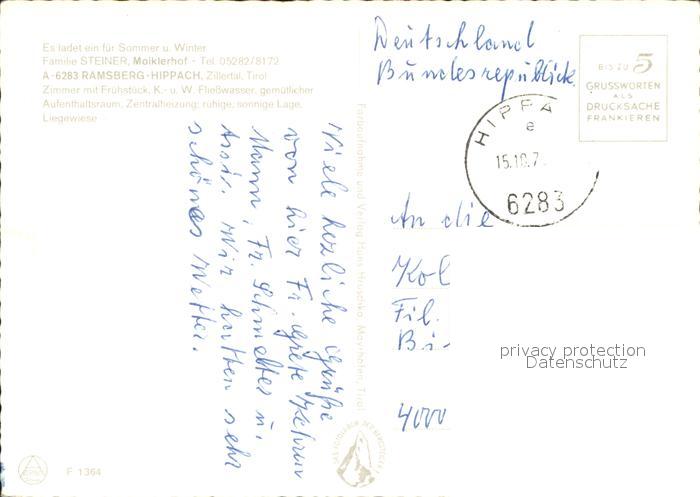 Es ladet ein für Sommer u. Winter
Familie STEINER, Moiklerhof - Tel. 05282/8172
A-6283 RAMSBERG-HIPPACH, Zillertal, Tirol
Zimmer mit Frühstück, K.- u. W. Fließwasser, gemütlicher
Aufenthaltsraum, Zentralheizung; ruhige, sonnige Lage,
Liegewiese
Viele herzliche Grüße
von hier Fr. Grete
Mann, Fr. u.
Wir hatten sehr
schönes Wetter.
F 1364
Farbaufnahme und Verlag Hans Hruschka, Mayrhofen, Tirol
Deutschland
Bundesrepublick
BIS ZU 5
GRUSSWORTEN
ALS
DRUCKSACHE
FRANKIEREN
HIPPA
e
15.10.7
6283
An die
Kol
Fil.
Bi-
4000
privacy protection
Datenschutz